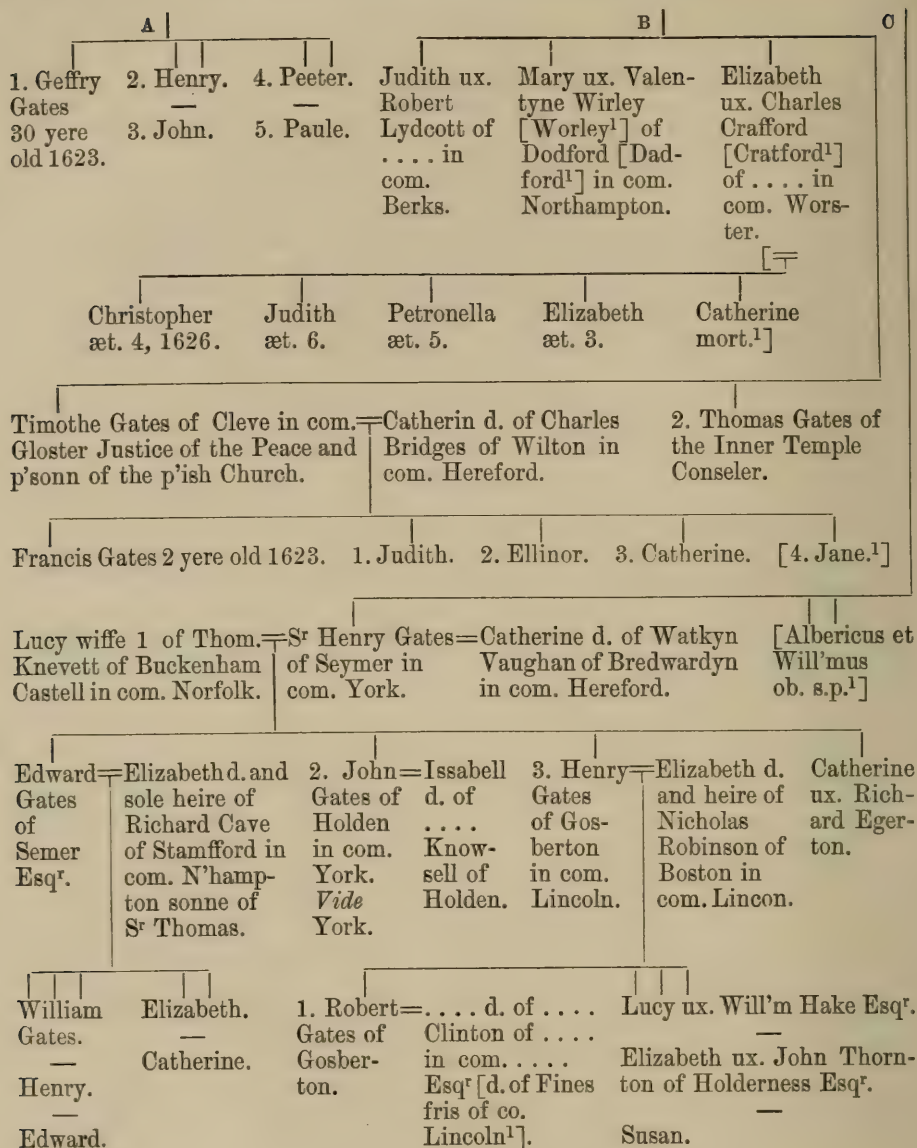 A B C
1. Geffry Gates 30 yere old 1623.
2. Henry.
—
3. John.
4. Peeter.
—
5. Paule.
Judith ux. Robert Lydcott of . . . . in com. Berks.
Mary ux. Valen-
tyne Wirley
[Worley¹] of
Dodford [Dad-
ford¹] in com.
Northampton.
Elizabeth
ux. Charles
Crafford
[Cratford¹]
of . . . . in
com. Wors-
ter.
[
Christopher
æt. 4, 1626.
Judith
æt. 6.
Petronella
æt. 5.
Elizabeth
æt. 3.
Catherine
mort.¹]
Timothe Gates of Cleve in com.
Gloster Justice of the Peace and
p'sonn of the p'ish Church.
=Catherin d. of Charles
Bridges of Wilton in
com. Hereford.
2. Thomas Gates of
the Inner Temple
Conseler.
Francis Gates 2 yere old 1623. 1. Judith. 2. Ellinor. 3. Catherine. [4. Jane.¹]
Lucy wiffe 1 of Thom.
Knevett of Buckenham
Castell in com. Norfolk.
=Sʳ Henry Gates
of Seymer in
com. York.
=Catherine d. of Watkyn
Vaughan of Bredwardyn
in com. Hereford.
[Albericus et
Will'mus
ob. s.p.¹]
Edward
Gates
of
Semer
Esqʳ.
=Elizabeth d. and
sole heire of
Richard Cave
of Stamfford in
com. N'hamp-
ton sonne of
Sʳ Thomas.
2. John
Gates of
Holden
in com.
York.
Vide
York.
=Issabell
d. of
. . . .
Know-
sell of
Holden.
3. Henry
Gates
of Gos-
berton
in com.
Lincoln.
=Elizabeth d.
and heire of
Nicholas
Robinson of
Boston in
com. Lincon.
Catherine
ux. Rich-
ard Eger-
ton.
William
Gates.
—
Henry.
—
Edward.
Elizabeth.
—
Catherine.
1. Robert
Gates of
Gosber-
ton.
=. . . . d. of . . . .
Clinton of . . . .
in com. . . . .
Esqʳ [d. of Fines
fris of co.
Lincoln¹].
Lucy ux. Will'm Hake Esqʳ.
—
Elizabeth ux. John Thorn-
ton of Holderness Esqʳ.
—
Susan.